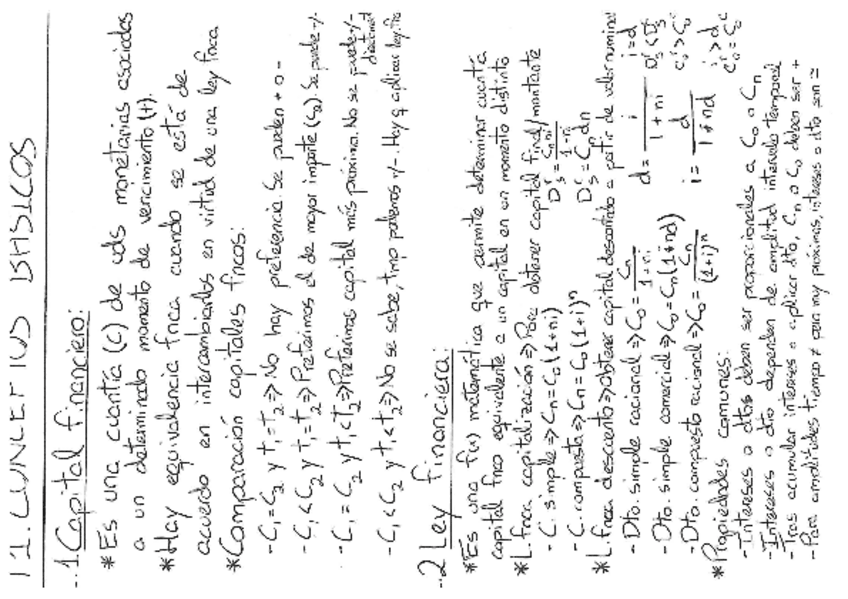 T1. CONCEPTOS BÁSICOS
.1 Capital financiero:
*Es una cuantía (C) de uds monetarias asociadas
a un determinado momento de vencimiento (t).
*Hay equivalencia fnca cuando se está de
acuerdo en intercambiarlos en virtud de una ley fnca
*Comparación capitales fncos:
-C₁=C₂ y t₁=t₂⇒No hay preferencia. Se pueden + o -
-C₁<C₂ y t₁=t₂⇒Preferimos el de mayor importe (C₂) Se puede +/-
-C₁=C₂ y t₁<t₂⇒Preferimos capital más próximo. No se puede +/- directament
-C₁<C₂ y t₁<t₂⇒No se sabe, tmp podemos +/-. Hay q aplicar ley fnca
.2 Ley financiera:
*Es una f(x) matemática que permite determinar cuantía
capital fnco equivalente a un capital en un momento distinto
*L. fnca capitalización⇒Para obtener capital final/montante
-C. simple⇒Cn=C₀(1+ni)
-C. compuesta⇒Cn=C₀(1+i)ⁿ
Dʳs=Cn·ni/1+ni
Dᶜs=Cn dn
*L. fnca descuento⇒Obtener capital descontado a partir de valor nominal
-Dto. simple racional⇒C₀=Cn/1+ni
-Dto. simple comercial⇒C₀=Cn(1-nd)
-Dto. compuesto racional⇒C₀=Cn/(1+i)ⁿ
d=i/1+ni
i=d
Dʳs<Dᶜs
C₀ʳ>C₀ᶜ
i=d/1-nd
i>d
C₀ʳ=C₀ᶜ
*Propiedades comunes:
-Intereses o dtos deben ser proporcionales a C₀ o Cn
-Intereses o dto dependen de amplitud intervalo temporal
-Tras acumular intereses o aplicar dto, Cn o C₀ deben ser +
-Para amplitudes tiempo ≠ pero muy próximas, intereses o dto son ≃